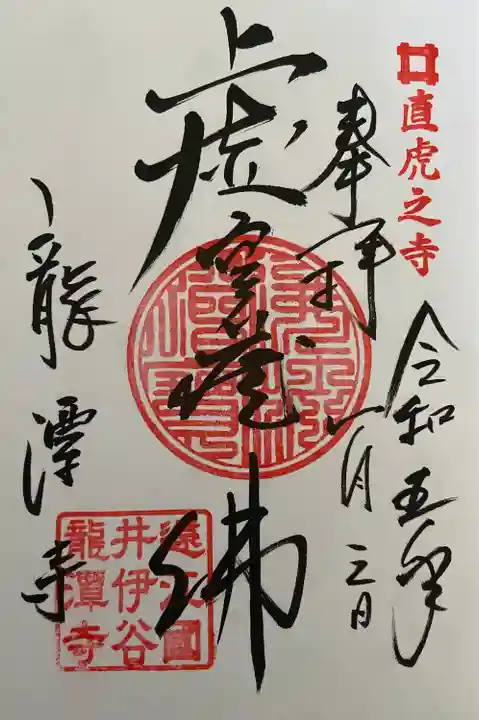 直虎之寺
令和五年
一月三日
奉拝
虚空蔵佛
龍潭寺
遠江國
井伊谷
龍潭寺